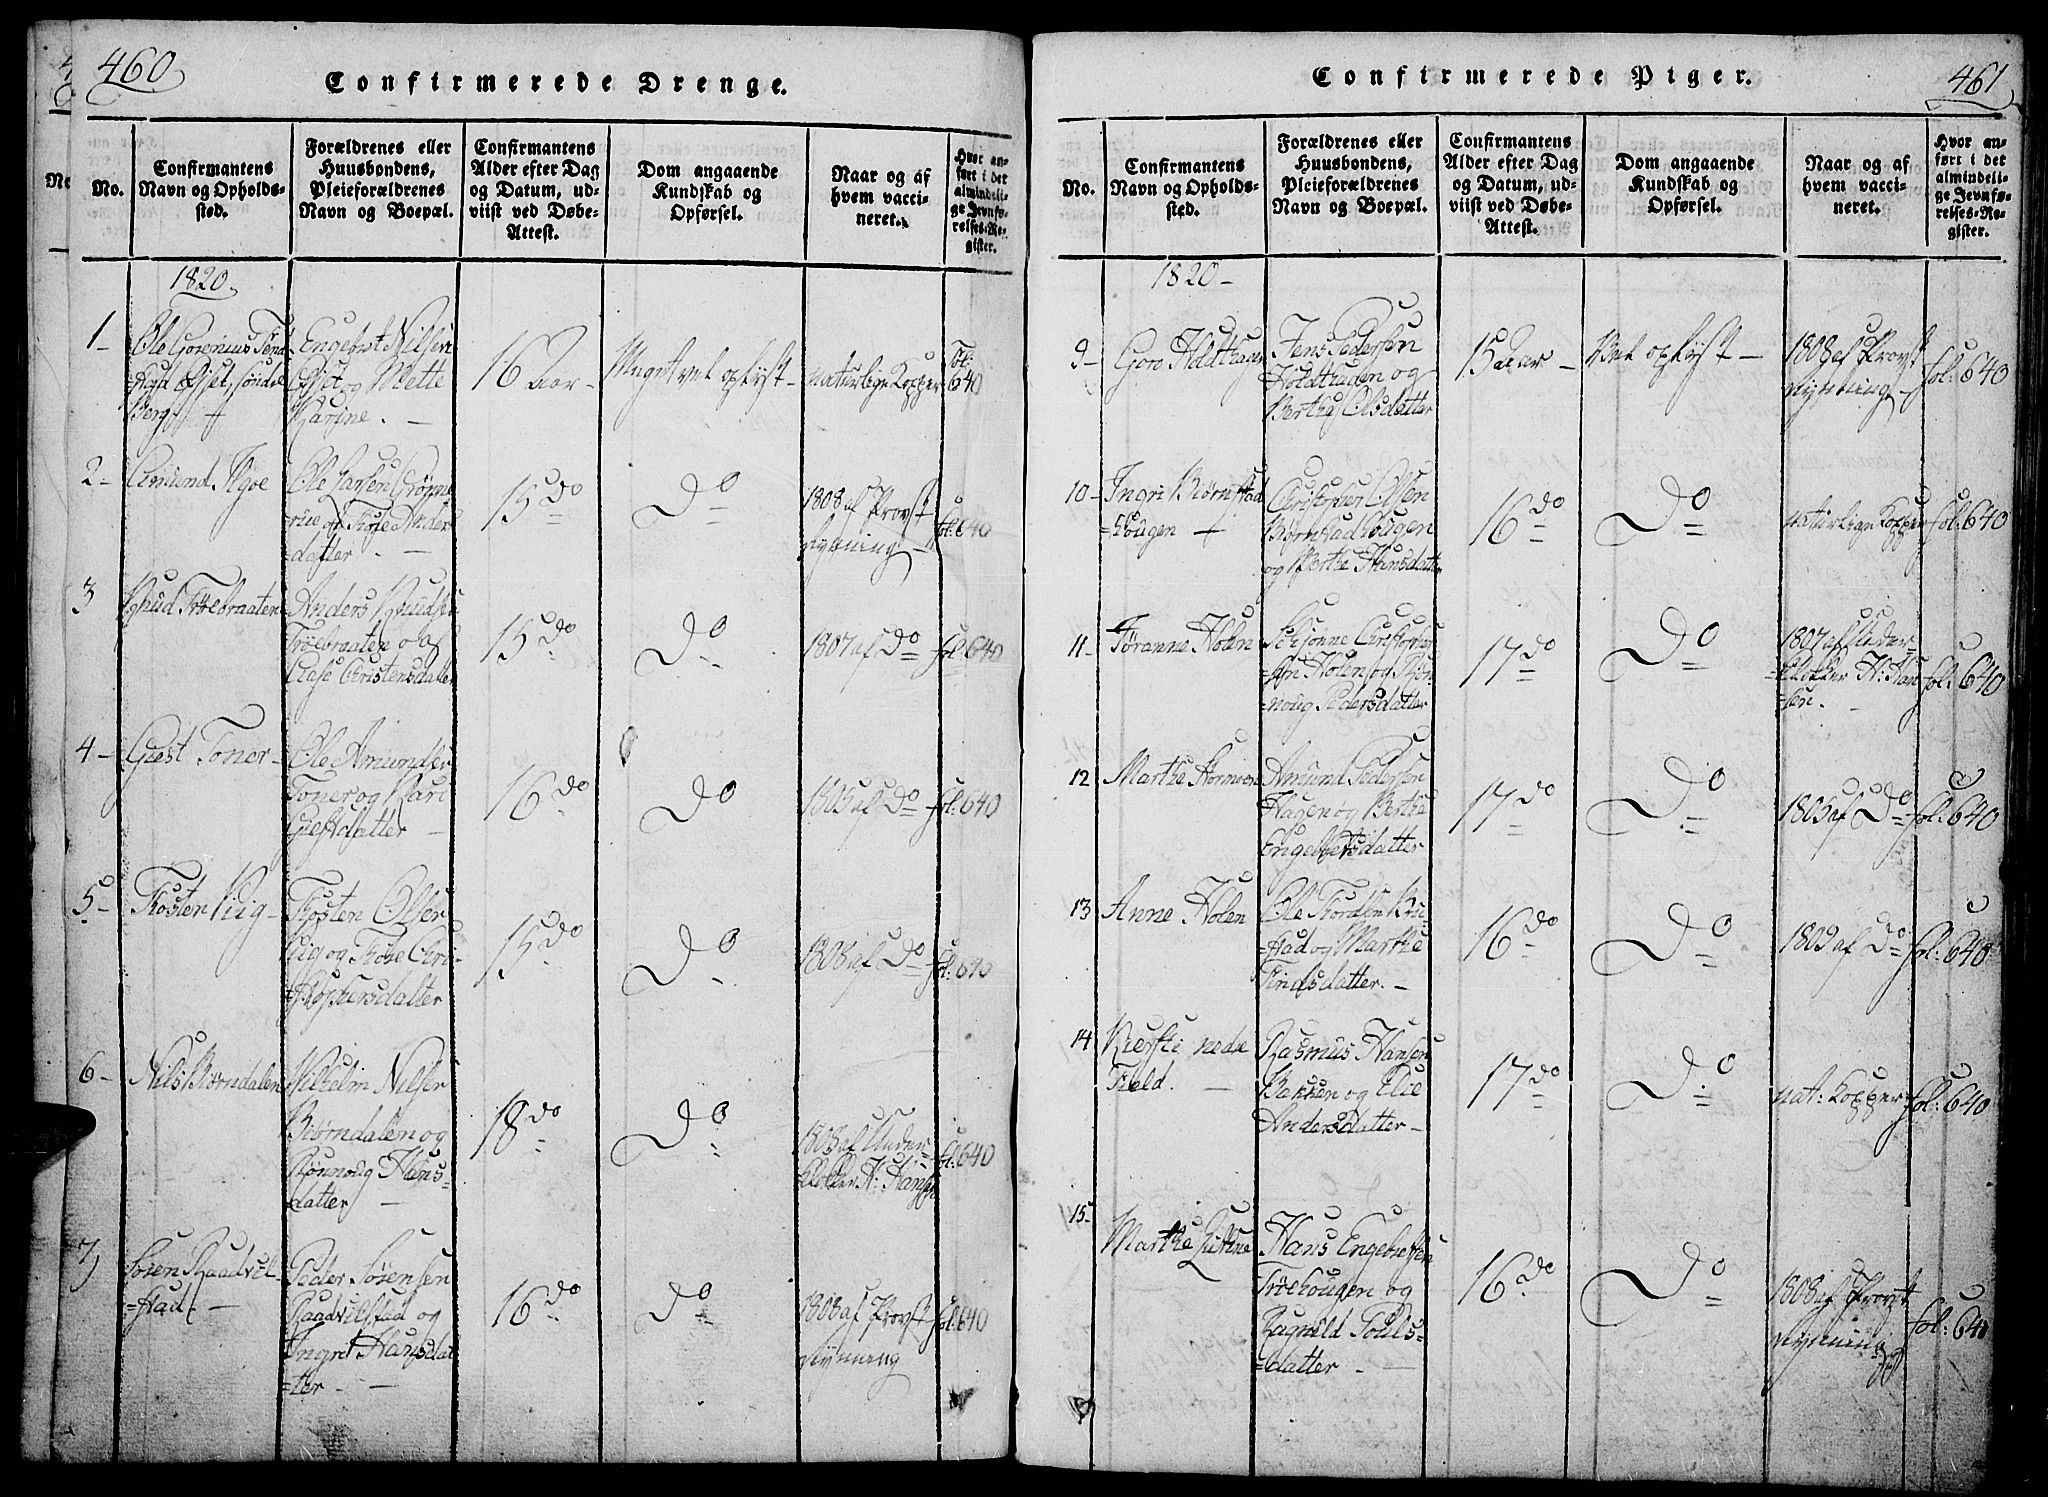 460
Confirmerede Drenge.
No.
Confirmantens
Navn og Opholds-
sted.
Forældrenes eller
Huusbondens,
Pleieforældrenes
Navn og Boepæl.
Confirmantens
Alder efter Dag
og Datum, ud-
viist ved Døbe-
Attest.
Dom angaaende
Kundskab og
Opførsel.
Naar og af
hvem vacci-
neret.
Hvor an-
ført i det
almindeli-
ge Jevnfø-
relses-Re-
gister.
1820.
1-
Ole
Engebret Nilsen
og Mette
Karine. -
16 Aar -
Meget vel oplyst -
naturlige Kopper
fol: 640
2-
Amund
Ole Larsen Grønne-
Anders-
=datter. -
15 do
Do
1808 af Provst
Nyrning -
fol: 640
3
Knud Trøebraaten
Anders Knudsen
Trøebraaten og
Aase Christensdatter
15 do
Do
1807 af Do
fol: 640
4-
Giest Toner -
Ole Amundsen
Toner og Kari
Giestdatter -
16 do
Do
1805 af Do
fol: 640
5-
Tosten Riig -
Tosten Olsen
Riig og
=stophersdatter
15 do
Do
1808 af Do
fol: 640
6-
Nils Biørndalen
Wilhelm Nilsen
Biørndalen og
Rønnoug Hans-
datter -
18 do
Do
1805 af Under-
=klokker H: Hansen
fol: 640
7)
Søren Raadvil-
=stad. -
Peder Sørensen
Raadvilstad og
Ingred Hansdat-
=ter. -
16 do
Do
1808 af Provst
Nyrning
fol: 640
461
Confirmerede Piger.
No.
Confirmantens
Navn og Opholds-
sted.
Forældrenes eller
Huusbondens,
Pleieforældrenes
Navn og Boepæl.
Confirmantens
Alder efter Dag
og Datum, ud-
viist ved Døbe-
Attest.
Dom angaaende
Kundskab og
Opførsel.
Naar og af
hvem vacci-
neret.
Hvor an-
ført i det
almindeli-
ge Jevnfø-
relses-Re-
gister.
1820 -
9-
Goro Holdthagen
Jens Pedersen
Holdthagen og
Berthe Olsdatter
15 Aar -
Vel oplyst -
1808 af Provst
Nyrning -
fol: 640
10-
Ingri Biørnstad
=hougen -
Christopher Olsen
Biørnstadhougen
og Berthe Hansdatter
16 do
Do
naturlige Kopper
fol: 640
11-
Tøranne Holen
Schjønne Christopher-
=sen Holen og Røn-
noug Pedersdatter
17 do
Do
1807 af Under-
=klokker H: Han-
=sen. -
fol: 640
12
Marthe
Amund Pedersen
Hagen og Berthe
Engebretsdatter
17 do
Do
1805 af Do
fol: 640
13
Anne Holen
Ole Tordsen
=stad og Marthe
=datter. -
16 do
Do
1809 af Do
fol: 640
14
Kiersti nedre
Field. -
Rasmus Hansen
Bakken og Elie
Andersdatter -
17 do
Do
nat: Kopper
fol: 640
15-
Marthe
Hans Engebretsen
Trøehougen og
Ragnild Pouls-
=datter -
16 do
Do
1808 af Provst
Nyrning
fol: 640